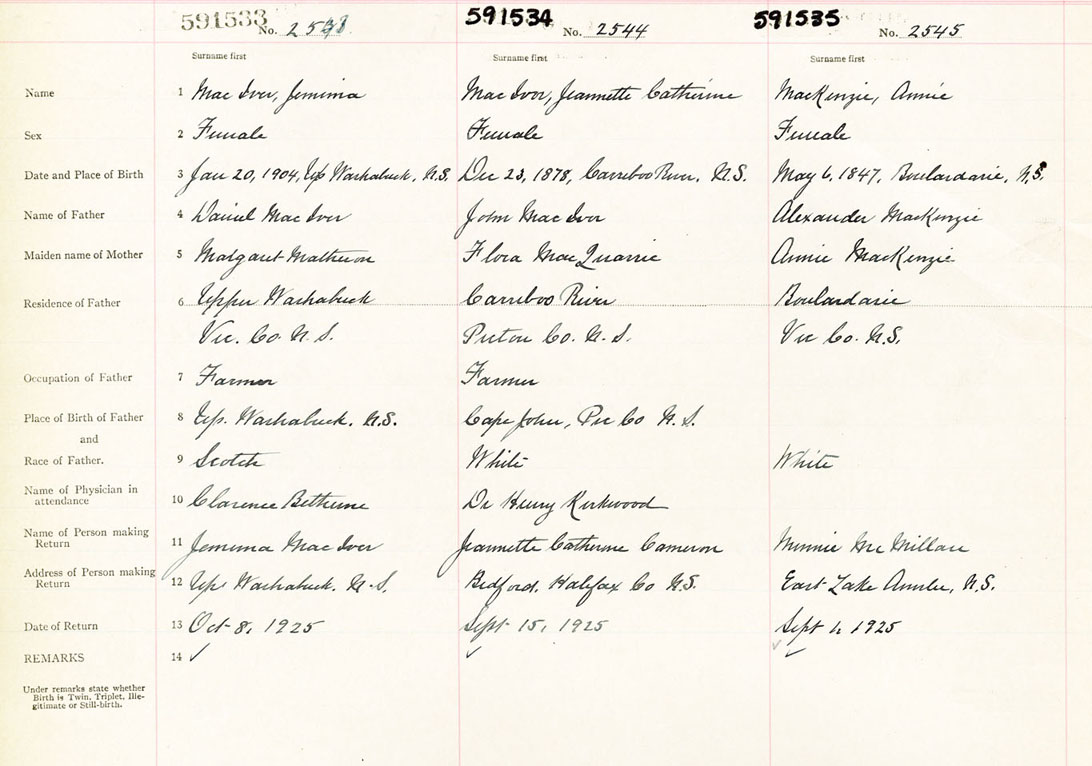 591533 No. 2543
591534 No. 2544
591535 No. 2545
Surname first Surname first Surname first
Name 1 Mac Iver, Jemima Mac Ivor, Jeannette Catherine MacKenzie, Annie
Sex 2 Female Female Female
Date and Place of Birth 3 Jan 20, 1904, Up Washabuck, N.S. Dec 23, 1878, Carriboo River, N.S. May 6, 1847, Boulardarie, N.S.
Name of Father 4 Daniel Mac Iver John Mac Ivor Alexander MacKenzie
Maiden name of Mother 5 Margaret Matheson Flora MacQuarrie Annie MacKenzie
Residence of Father 6 Upper Washabuck Carriboo River Boulardarie
Vic. Co. N.S. Pictou Co. N.S. Vic Co. N.S.
Occupation of Father 7 Farmer Farmer
Place of Birth of Father 8 Up. Washabuck. N.S. Cape John, Pic Co N.S.
and
Race of Father. 9 Scotch White White
Name of Physician in
attendance 10 Clarence Bethune Dr Henry Kirkwood
Name of Person making
Return 11 Jemima Mac Iver Jeannette Catherine Cameron Minnie Mc Millan
Address of Person making
Return 12 Up. Washabuck. N.S. Bedford, Halifax Co N.S. East Lake Ainslie, N.S.
Date of Return 13 Oct 8, 1925 Sept 15, 1925 Sept 1925
REMARKS 14 ✓ ✓ ✓
Under remarks state whether
Birth is Twin, Triplet, Ille-
gitimate or Still-birth.